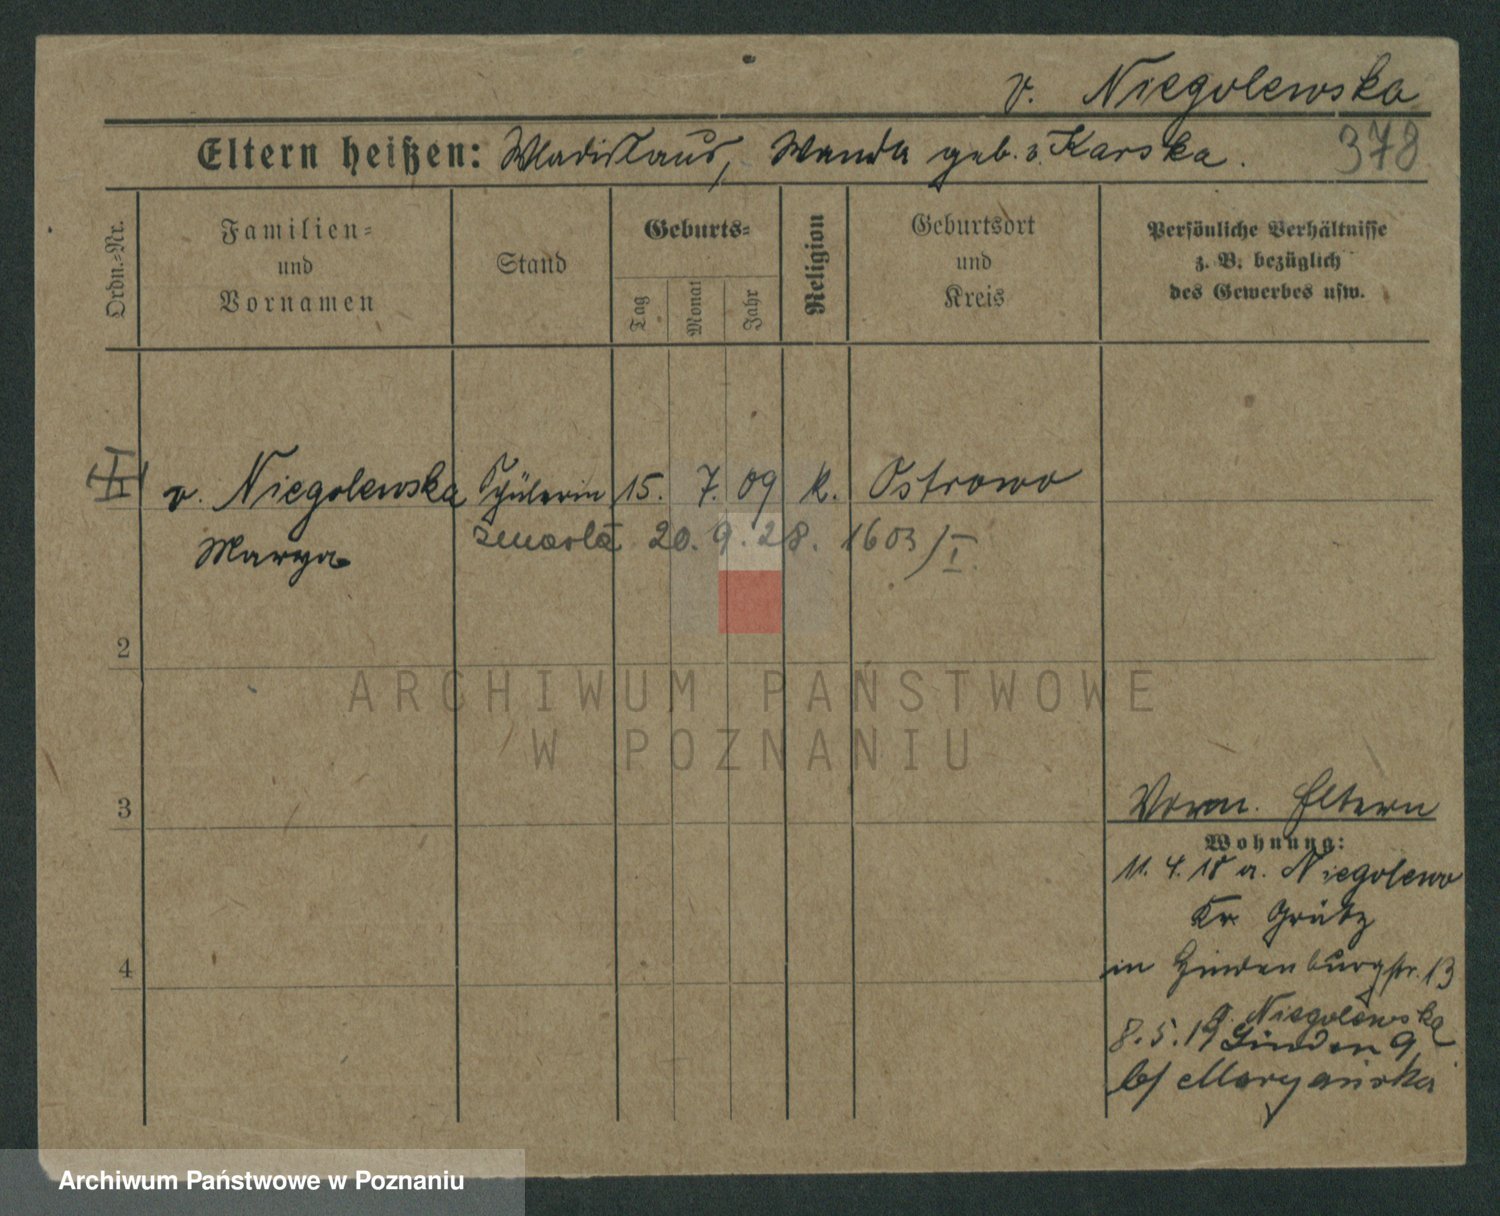 v. Niegolewska
Eltern heißen: Wladislaus, Wanda geb. v. Karska.
378
Ordn.-Nr.
Familien-
und
Vornamen
Stand
Geburts-
Tag
Monat
Jahr
Religion
Geburtsort
und
Kreis
Persönliche Verhältnisse
z. B. bezüglich
des Gewerbes usw.
v. Niegolewska Schülerin 15. 7. 09 k. Ostrowo
Marya
zmarła 20. 9. 28. 1603/I.
2
ARCHIWUM PAŃSTWOWE
W POZNANIU
3
4
Vorm. Eltern
Wohnung:
11. 4. 18 a. Niegolewo
Kr. Grätz
in Hindenburgstr. 13
v. Niegolewska
8. 5. 19 Linden 9
b/ Maryańska
Archiwum Państwowe w Poznaniu